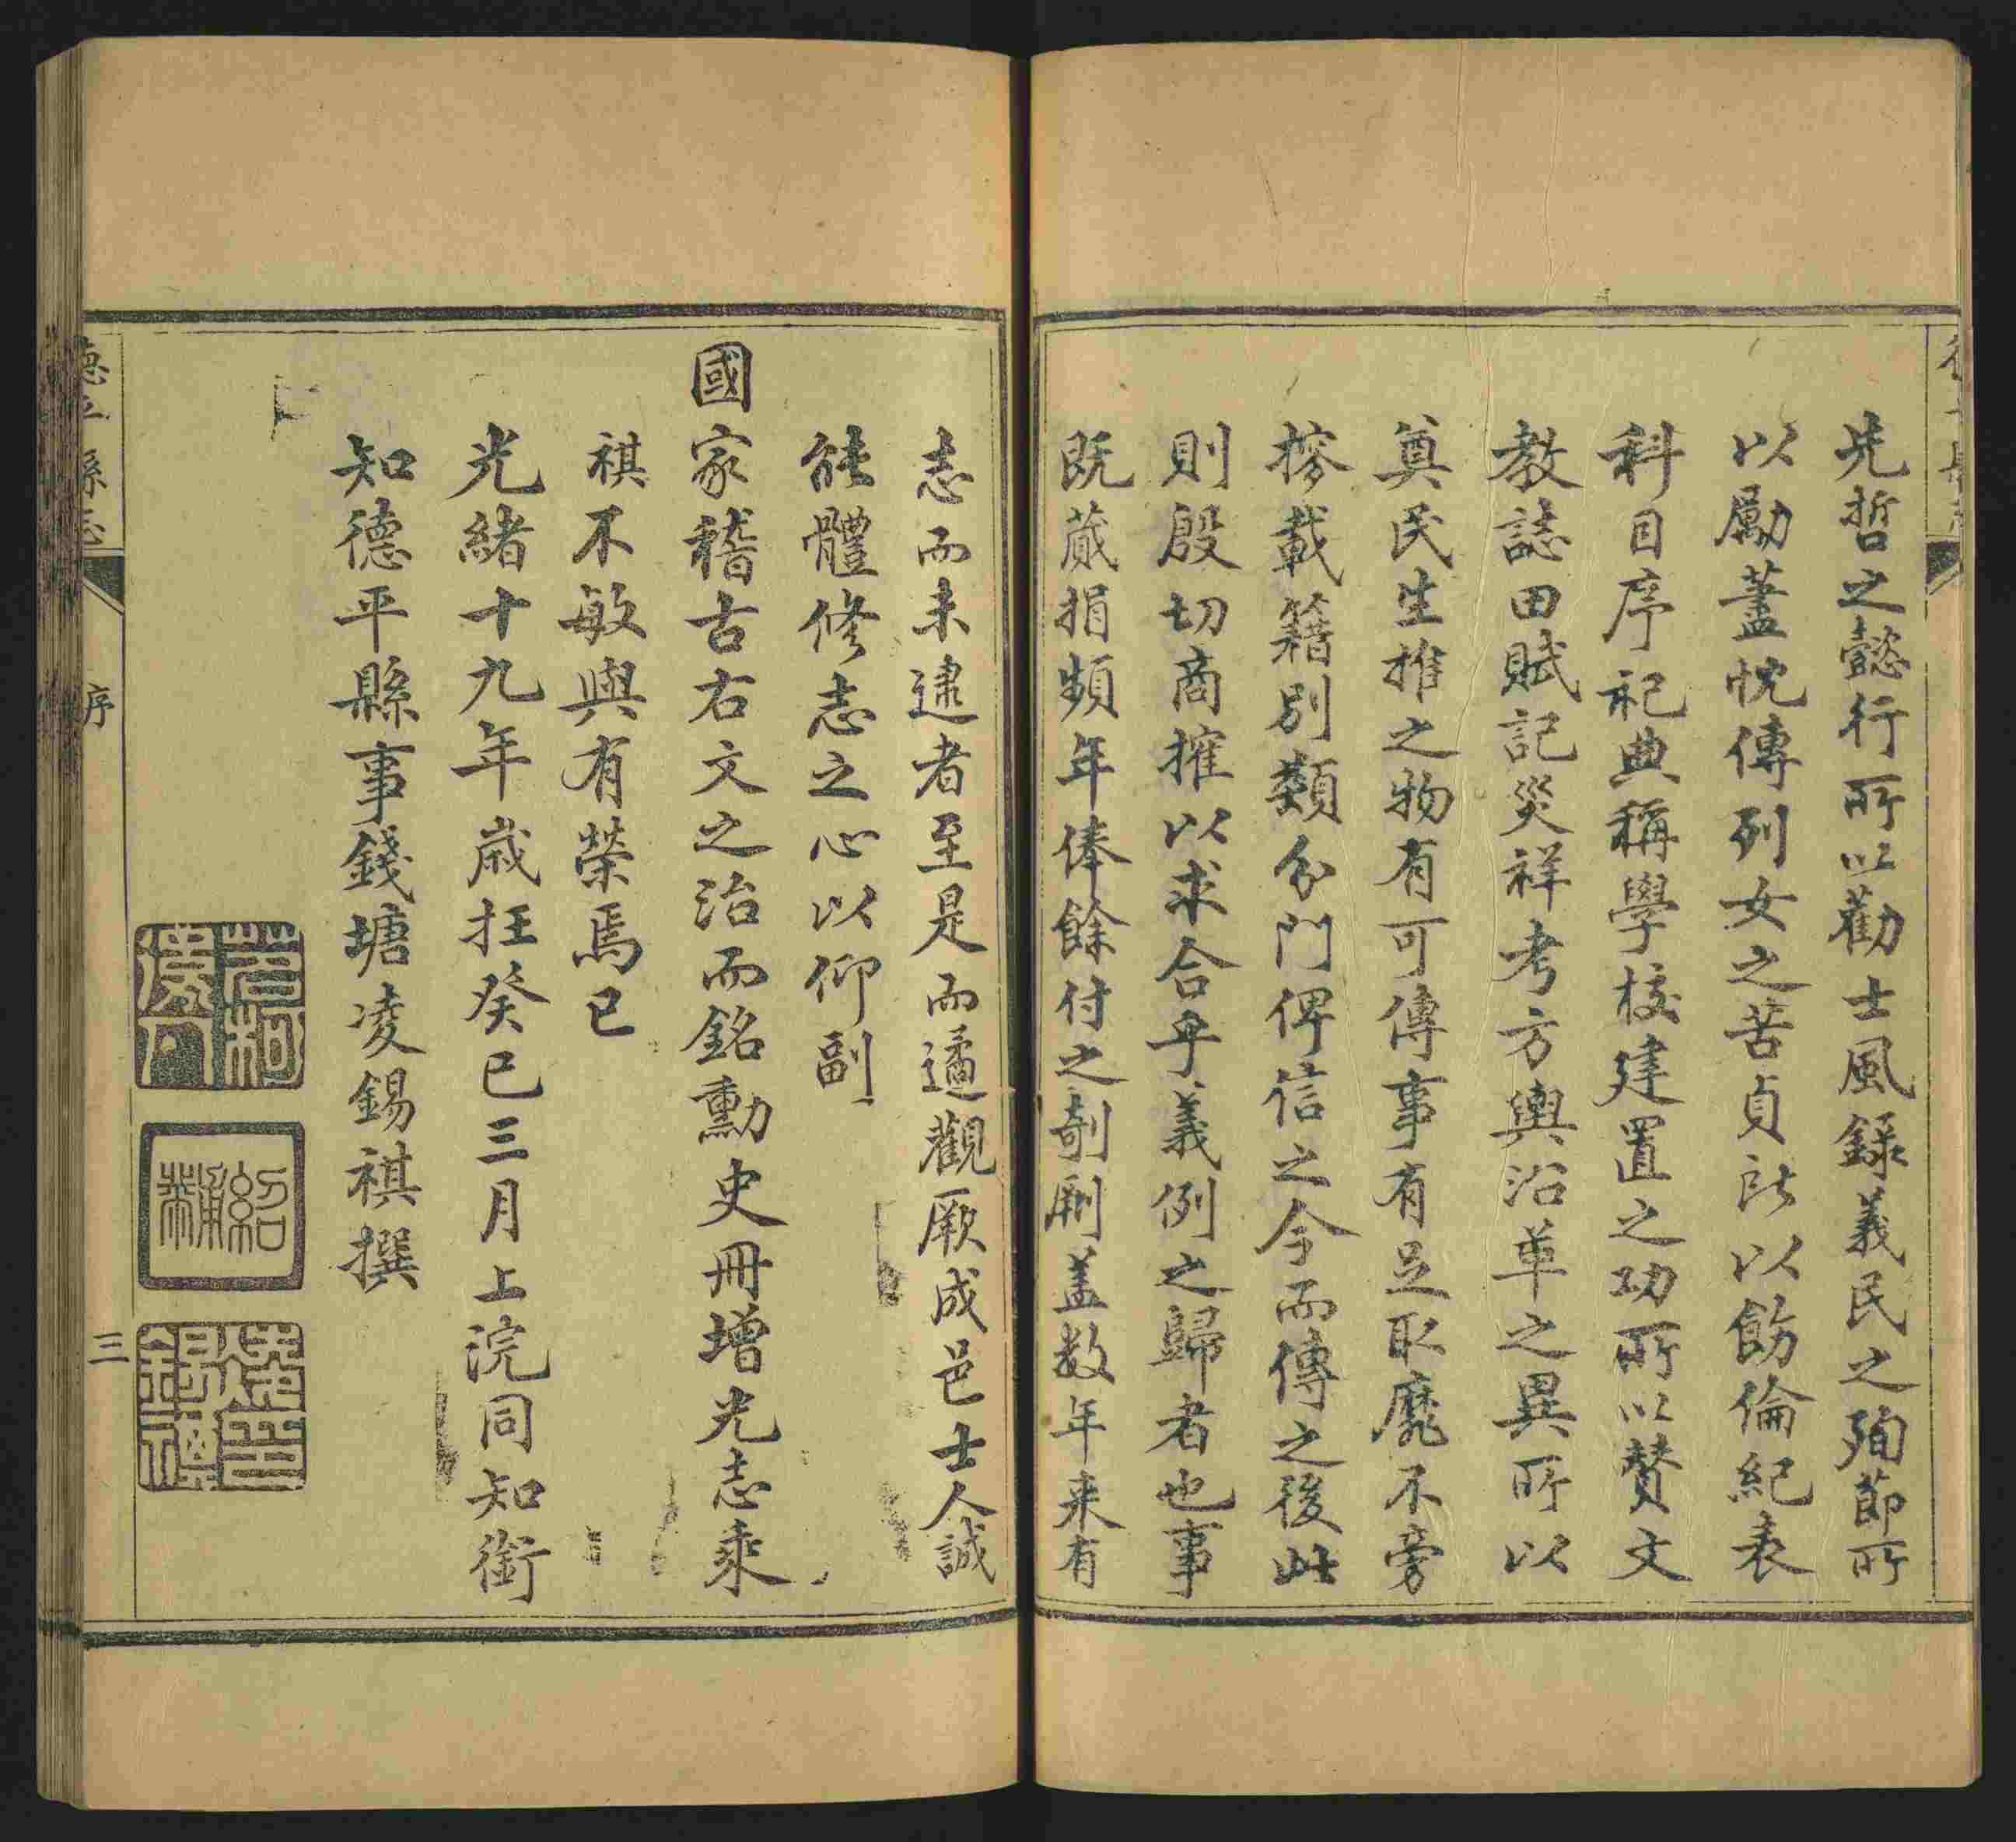 先哲之懿行所以勸士風錄義民之殉節所
以勵藎忱傳列女之苦貞所以飭倫紀表
科目序祀典稱學校建置之功所以贊文
教誌田賦記災祥考方輿沿革之異所以
奠民生推之物有可傳事有足取靡不旁
搜載籍別類分門俾信之今而傳之後此
則殷切商搉以求合乎義例之歸者也事
既蕆捐頻年俸餘付之剞劂蓋数年来有
志而未逮者至是而遹觀厥成邑士人誠
能體修志之心以仰副
國家稽古右文之治而銘勳史冊增光志乘
祺不敏與有榮焉已
光緒十九年歲在癸巳三月上浣同知銜
知德平縣事錢塘凌錫祺撰
德平縣志
序
三